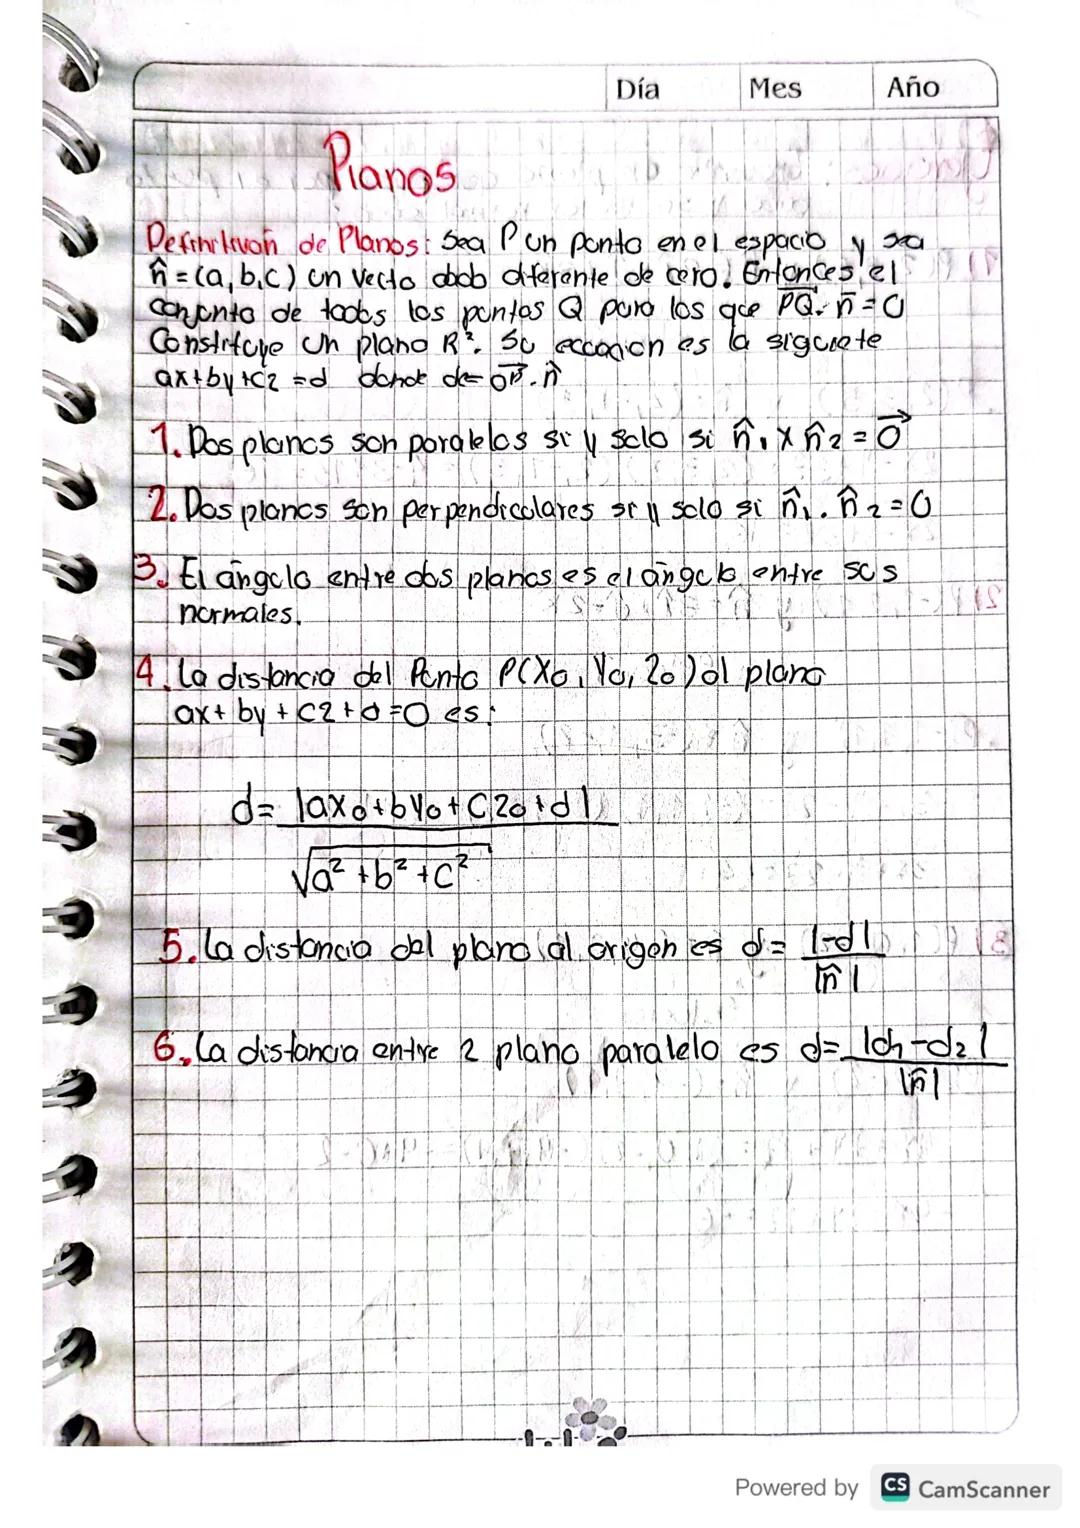 Día Mes Año
Planos
Definición de Planos: Sea P un punto en el espacio y sea
n̂ = (a, b, c) un vecto dado diferente de cero. Entonces el
conjunto de todos los puntos Q para los que PQ · n̄ = 0
Constituye un plano R³. Su ecuación es la siguiente
ax+by+cz = d donde d= OP · n̂
1. Dos planos son paralelos si y solo si n̂₁ x n̂₂ = 0⃗
2. Dos planos son perpendiculares si y solo si n̂₁ . n̂₂ = 0
3. El ángulo entre dos planos es el ángulo entre sus
normales.
4. La distancia del Punto P(X₀, Y₀, Z₀) al plano
ax + by + cz + d = 0 es:
d= |ax₀+by₀+cz₀+d|
√a² + b² + c²
5. La distancia del plano al origen es d= |-d|
|n̂|
6. La distancia entre 2 plano paralelo es d= |d₁-d₂|
|n̂|
Powered by CS CamScanner